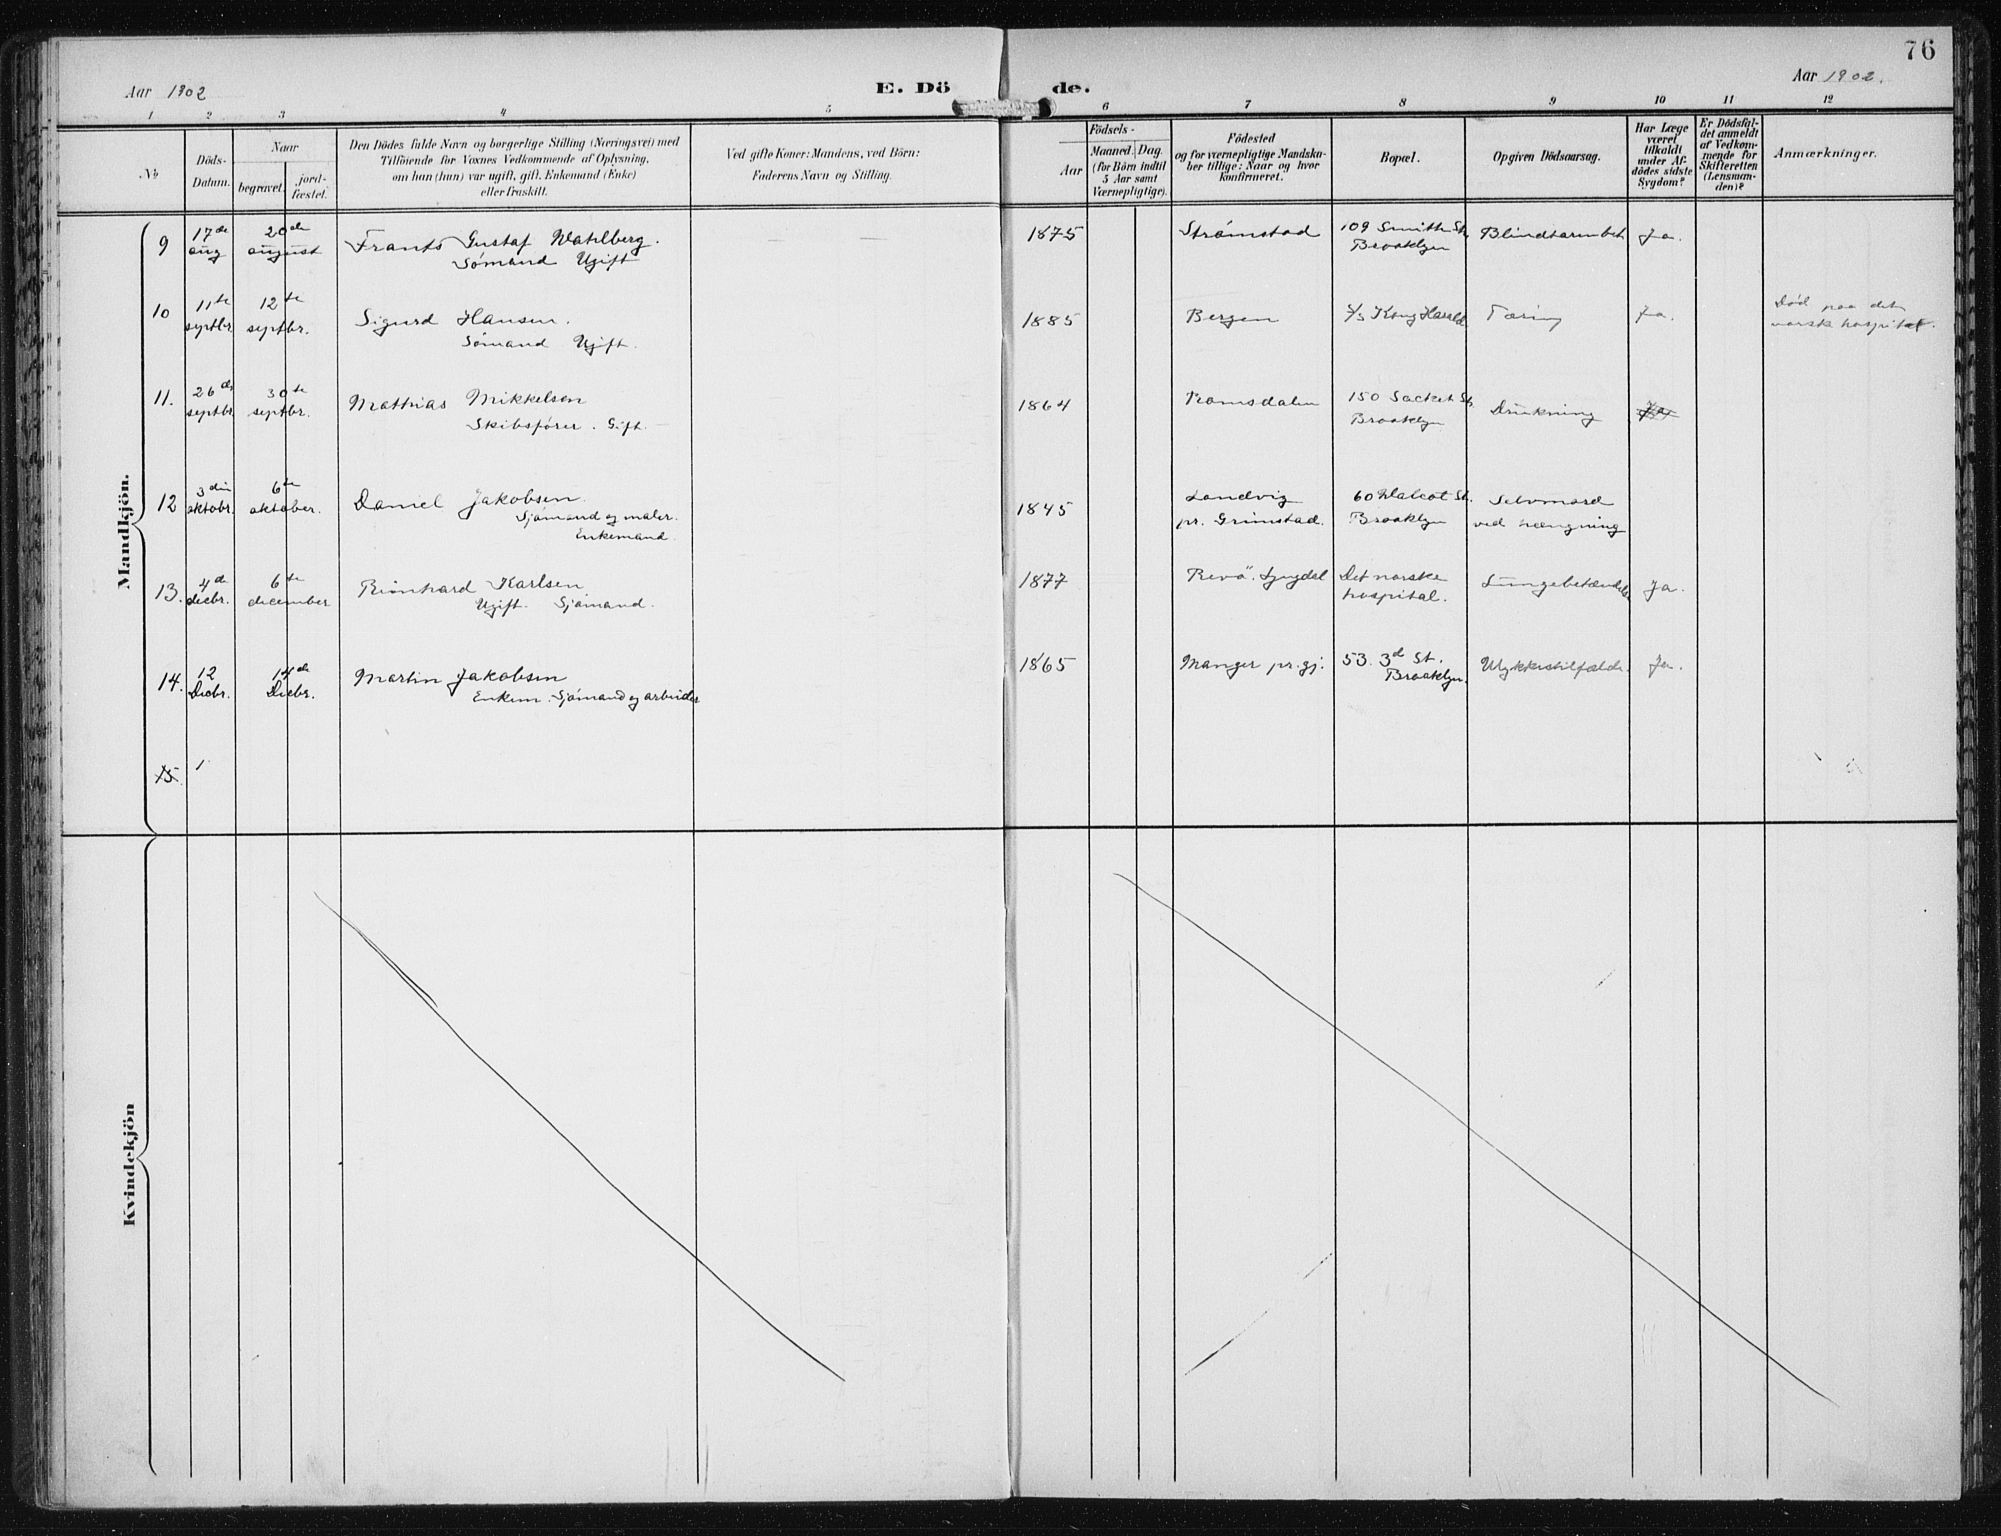 76
Aar 1902
E. Dö
de.
Aar 1902.
1 2 3 4 5 6 7 8 9 10 11 12
№
Döds-
Datum.
Naar
begravet.
jord-
fæstet.
Den Dödes fulde Navn og borgerlige Stilling (Næringsvei) med
Tilföiende for Voxnes Vedkommende af Oplysning,
om han (hun) var ugift, gift, Enkemand (Enke)
eller fraskilt.
Ved gifte Koner: Mandens, ved Börn:
Faderens Navn og Stilling.
Födsels-
Aar
Maaned.
Dag.
(for Börn indtil
5 Aar samt
Værnepligtige).
Födested
og for værnepligtige Mandska-
ber tillige: Naar og hvor
Konfirmeret.
Bopæl.
Opgiven Dödsaarsag.
Har Læge
været
tilkaldt
under Af-
dödes sidste
Sygdom?
Er Dödsfal-
det anmeldt
af Vedkom-
mende for
Skifteretten
(Lensman-
den)?
Anmærkninger.
Mandkjön.
9 17de aug 20de august Frants Gustaf Wahlberg. 1875 Strömstad 109 Smith St, Blindtarmbet. Ja.
Sømand Ugift Brooklyn
10 11te septbr. 12te septbr. Sigurd Hansen. 1885 Bergen S/S Kong Harald Tæring Ja. Död paa det
Sømand Ugift. norske hospital.
11. 26de septbr. 30te septbr. Mathias Mikkelsen 1864 Romsdalen 150 Sacket St. Drukning Ja
Skibsfører. Gift. Brooklyn
12 3die oktobr. 6te oktober. Daniel Jakobsen. 1845 Landvig 60 Walcot St. Selvmord
Sjömand og maler. pr. Grimstad. Brooklyn ved hængning
Enkemand.
13. 4de decbr. 6te december Reinhard Karlsen 1877 Revö. Lyngdal Det norske Lungebetændelse Ja.
Ugift. Sjömand. hospital.
14. 12 Decbr. 14de Decbr. Martin Jakobsen 1865 Manger pr. gj. 53. 3d St. Ulykkestilfælde. Ja.
Enkem. Sjömand og arbeider Brooklyn.
15
Kvindekjön